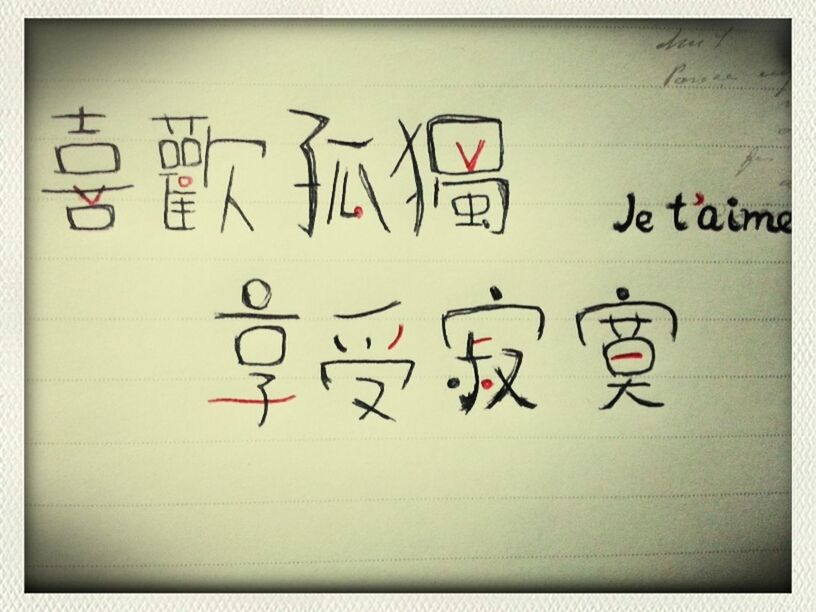 喜歡孤獨
Je t'aime
享受寂寞